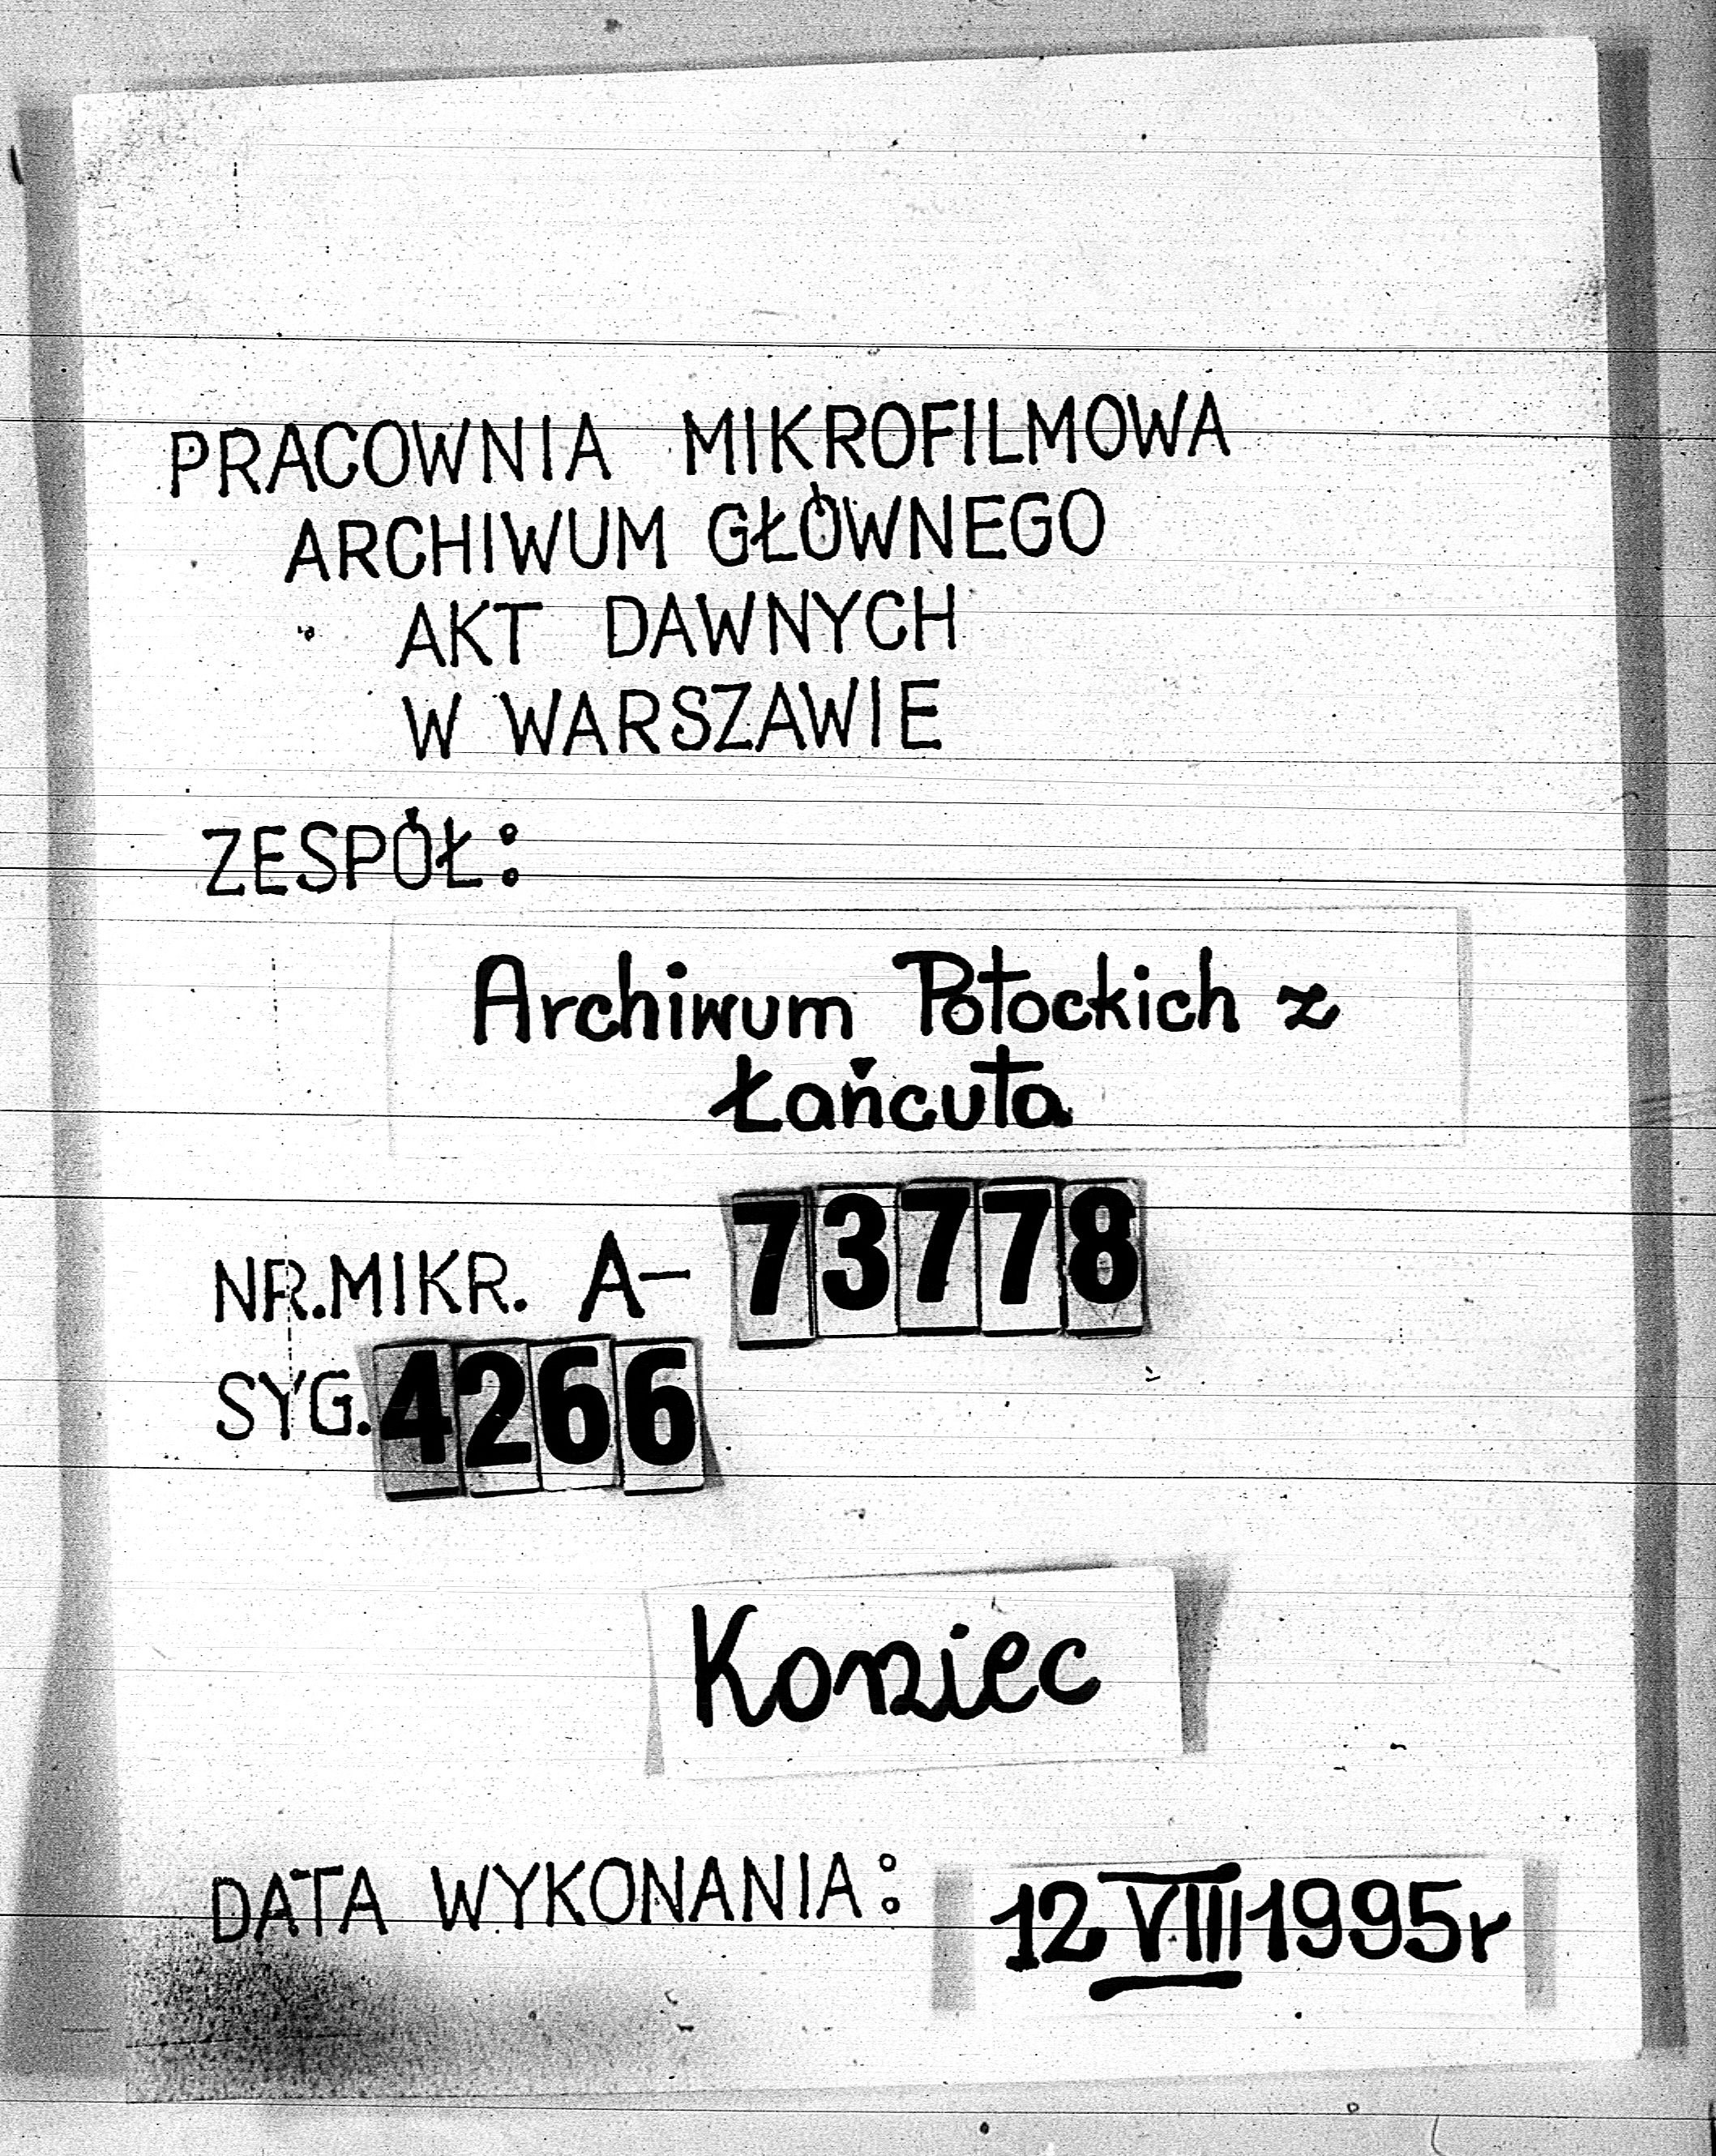 PRACOWNIA MIKROFILMOWA
ARCHIWUM GŁÓWNEGO
AKT DAWNYCH
W WARSZAWIE
ZESPÓŁ:
Archiwum Potockich z
Łańcuta
NR.MIKR. A- 73778
SYG. 4266
Koniec
DATA WYKONANIA: 12 VIII 1995r